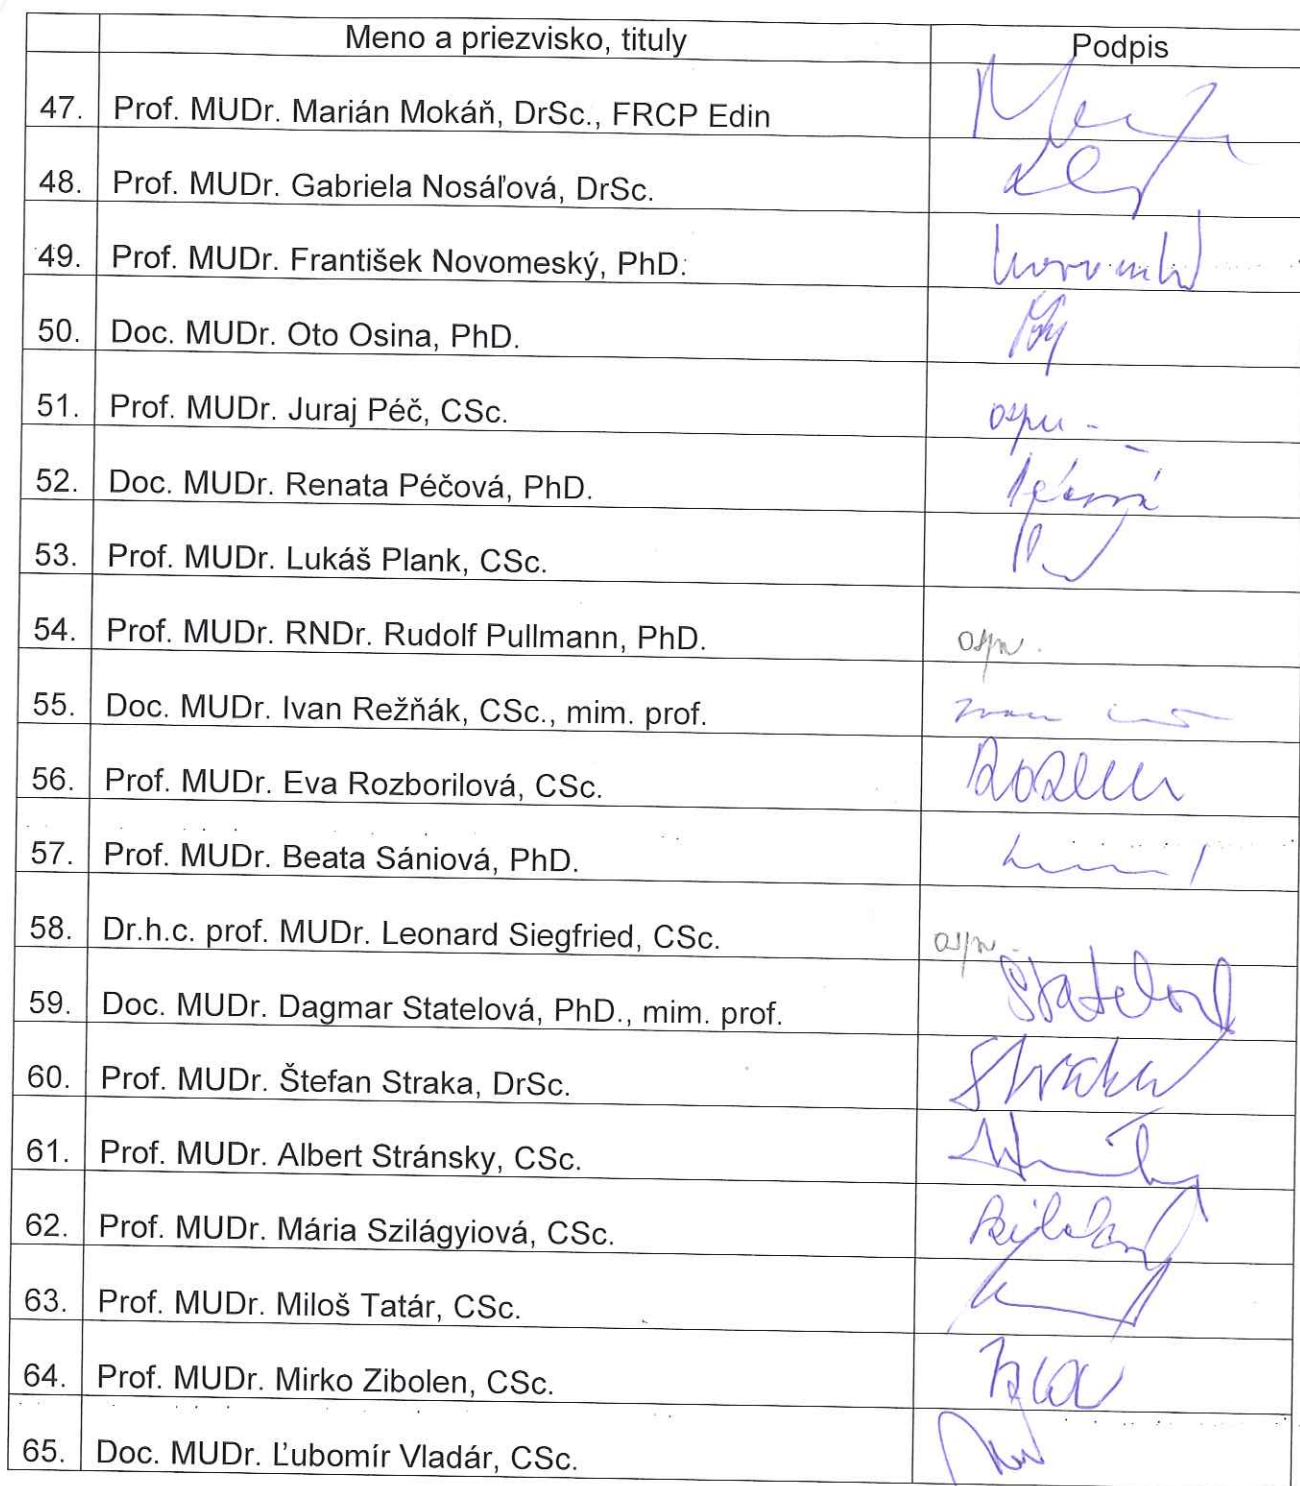 Meno a priezvisko, tituly Podpis
47. Prof. MUDr. Marián Mokáň, DrSc., FRCP Edin
48. Prof. MUDr. Gabriela Nosáľová, DrSc.
49. Prof. MUDr. František Novomeský, PhD.
50. Doc. MUDr. Oto Osina, PhD.
51. Prof. MUDr. Juraj Péč, CSc.
52. Doc. MUDr. Renata Péčová, PhD. Péčová
53. Prof. MUDr. Lukáš Plank, CSc.
54. Prof. MUDr. RNDr. Rudolf Pullmann, PhD. ospr.
55. Doc. MUDr. Ivan Režňák, CSc., mim. prof.
56. Prof. MUDr. Eva Rozborilová, CSc.
57. Prof. MUDr. Beata Sániová, PhD.
58. Dr.h.c. prof. MUDr. Leonard Siegfried, CSc. ospr.
59. Doc. MUDr. Dagmar Statelová, PhD., mim. prof. Statelová
60. Prof. MUDr. Štefan Straka, DrSc. Straka
61. Prof. MUDr. Albert Stránsky, CSc.
62. Prof. MUDr. Mária Szilágyiová, CSc.
63. Prof. MUDr. Miloš Tatár, CSc.
64. Prof. MUDr. Mirko Zibolen, CSc.
65. Doc. MUDr. Ľubomír Vladár, CSc.